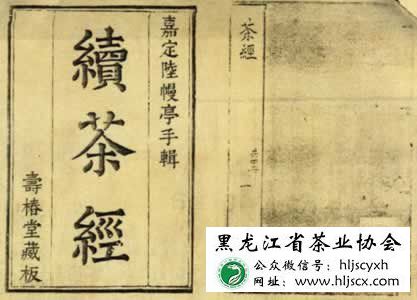 嘉定陸幔亭手輯
續茶經
壽椿堂藏板
茶經
一
黑龙江省茶业协会
公众微信号：hljscyxh
网址：www.hljscx.com